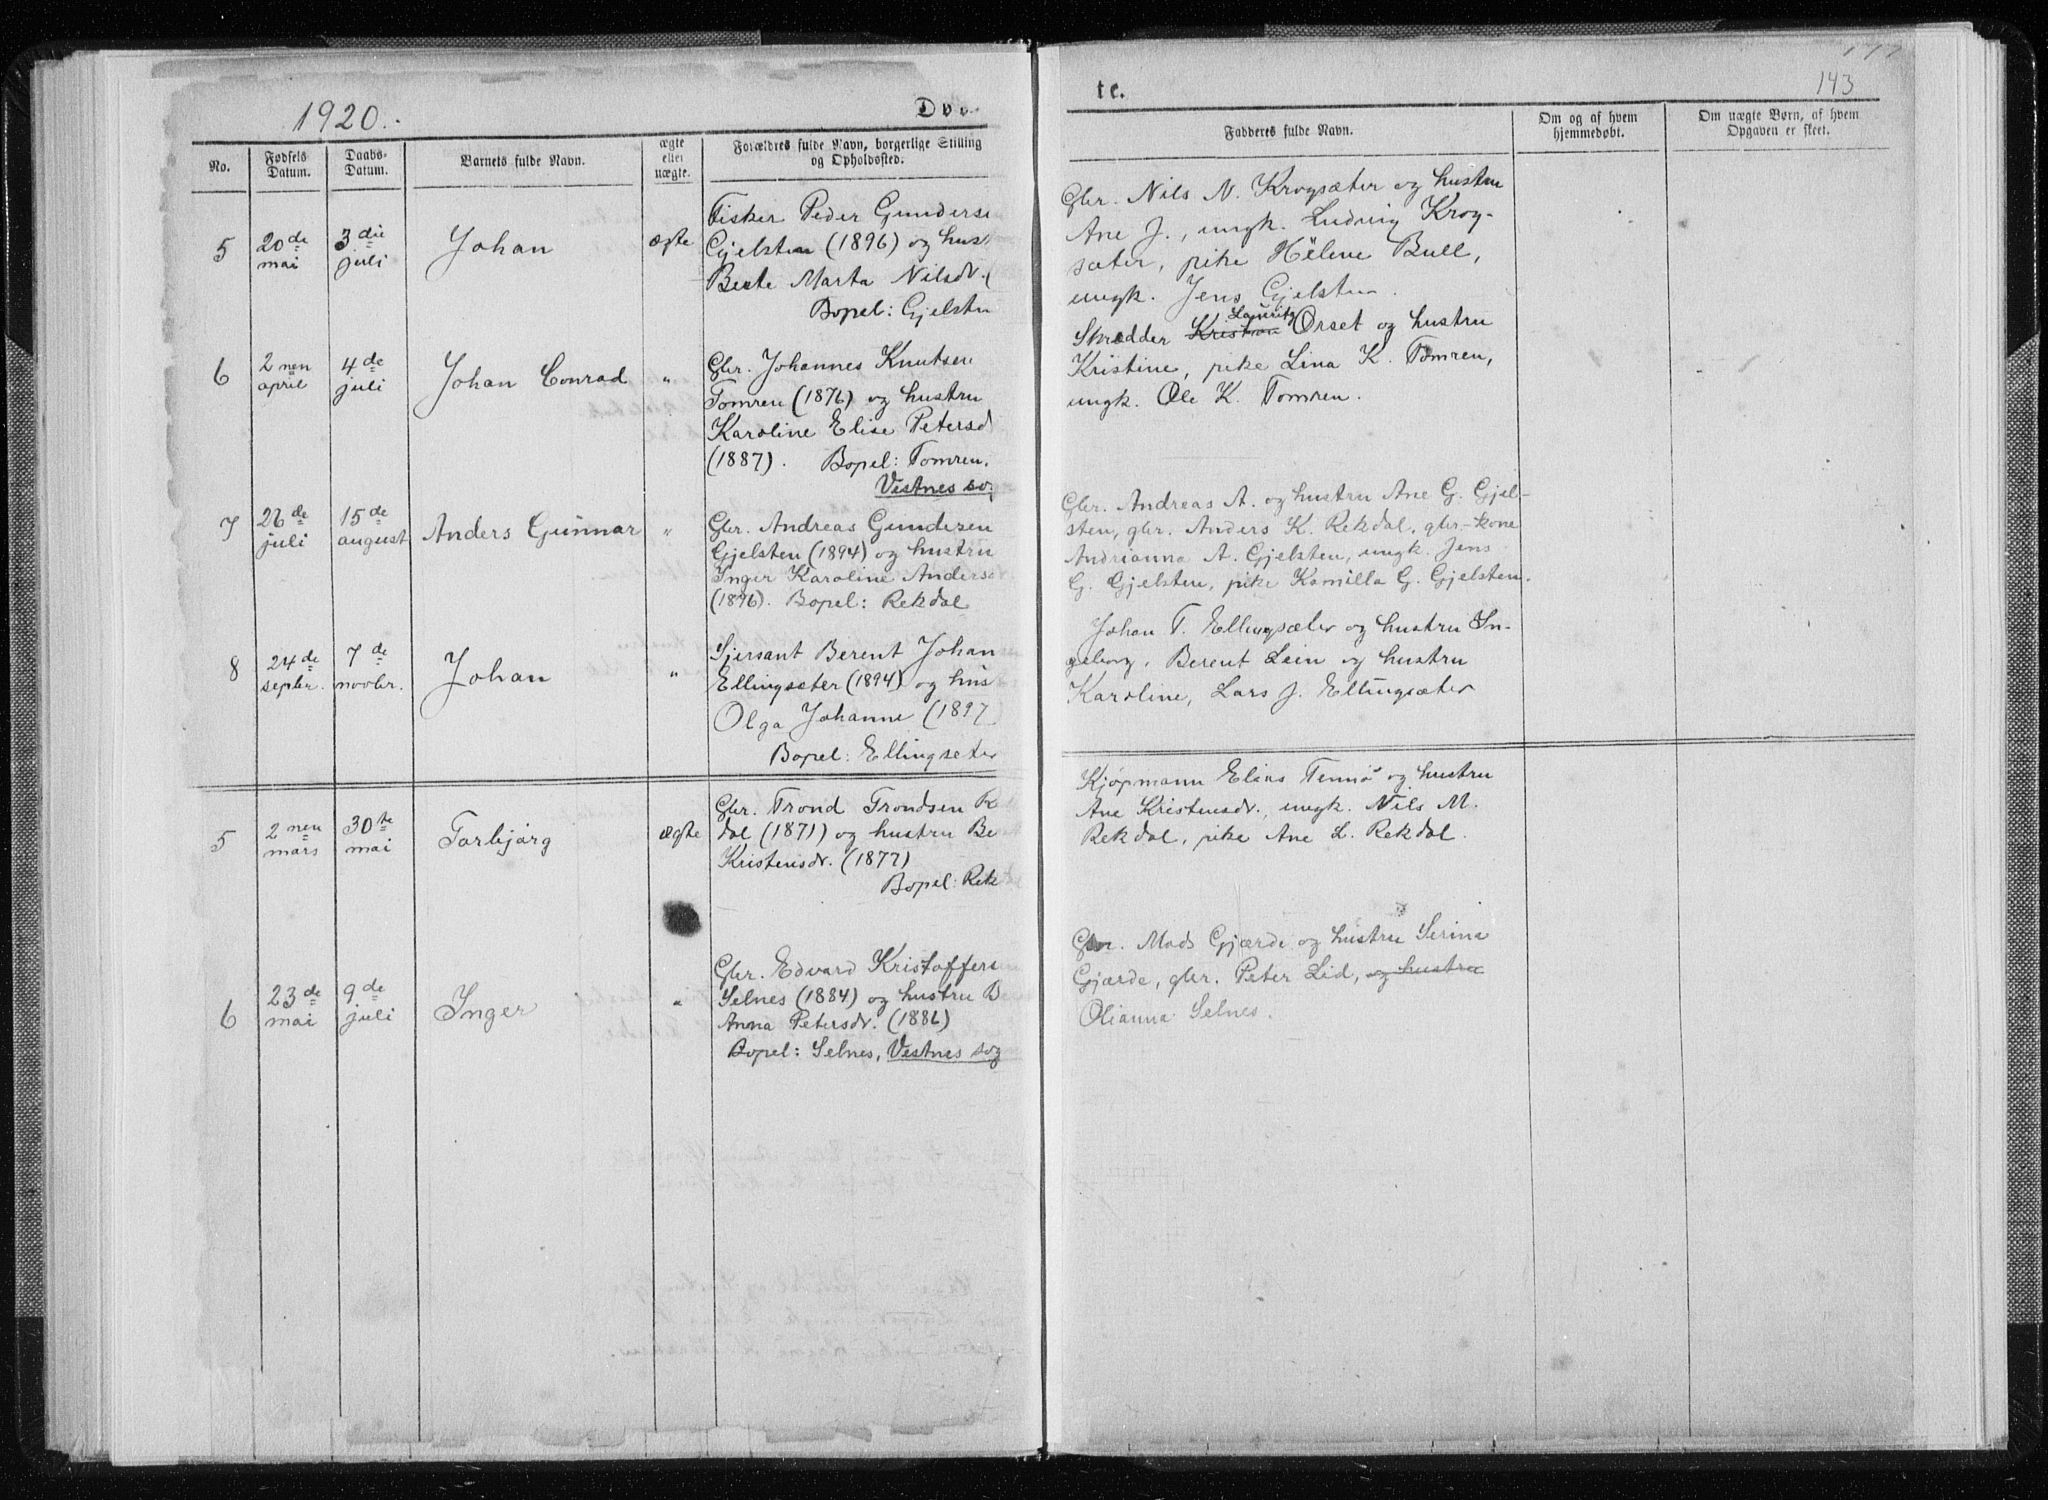 1920.
Dø
te.
143
No.
Fødsels Datum.
Daabs-Datum.
Barnets fulde Navn.
ægte eller uægte.
Forældres fulde Navn, borgerlige Stilling og Opholdssted.
Fadderes fulde Navn.
Om og af hvem hjemmedøbt.
Om uægte Børn, af hvem Opgaven er skeet.
5
20de mai
3die juli
Johan
ægte
Fisker Peder Gunderse
Gjelsten (1896) og hus
Beate Marta Nilsdr. (
Bopel: Gjelsten
Gbr. Nils N. Krogsæter og hustru
Ane J., ungk. Ludvig Krog-
sæter, pike Hélene Bull,
ungk. Jens Gjelsten.
6
2nen april
4de juli
Johan Conrad
"
Gbr. Johannes Knutsen
Tomren (1876) og hustru
Karoline Elise Petersd
(1887). Bopel: Tomren,
Vestnes so
Lauritz
Skrædder Kristian Orset og hustru
Kristine, pike Lina K. Tomren,
ungk. Ole K. Tomren.
7
26de juli
15de august
Anders Gunnar
"
Gbr. Andreas Gundersen
Gjelsten (1894) og hustru
Inger Karoline Anders
(1896). Bopel: Rekdal
Gbr. Andreas A. og hustru Ane G. Gjel-
sten, gbr. Anders K. Rekdal, gbr-kone
Andrianna A. Gjelsten, ungk. Jens
G. Gjelsten, pike Kamilla G. Gjelsten.
8
24de septbr.
7de novbr.
Johan
"
Sjersant Berent Johan
Ellingsæter (1894) og hus
Olga Johanne (1897
Bopel: Ellingseter
Johan T. Ellingsæter og hustru In-
geborg, Berent Lein og hustru
Karoline, Lars J. Ellingsæter
5
2nen mars
30te mai
Torbjørg
ægte
Gbr. Trond Trondsen R
dal (1871) og hustru Be
Kristensdr. (1877)
Bopel: Rek
Kjöpmann Elias Tennö og hustru
Ane Kristensdr., ungk. Nils M.
Rekdal, pike Ane L. Rekdal.
6
23de mai
9de juli
Inger
"
Gbr. Edvard Kristoffers
Selnes (1884) og hustru B
Anna Petersdr. (1886)
Bopel: Selnes, Vestnes sog
Gbr. Mads Gjærde og hustru Serina
Gjærde, gbr. Peter Lid, og hustru
Olianna Selnes.